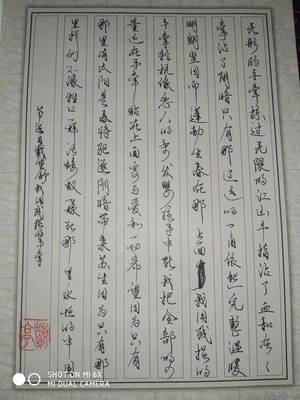 无形的手掌掠过无限的江山手指沾了血和灰
掌沾了阴暗只有那辽远的一角依然完整温暖
明朗坚固而蓬勃生春在那上面我用残损的
手掌轻抚像恋人的柔发婴孩手中乳我把全部的力
量运在手掌贴在上面寄与爱和一切希望因为只有
那里有太阳是春将驱逐阴暗带来苏生因为只有那
里我们不像牲口一样活蝼蚁一样死那里永恒的中国
节选自戴望舒我用残损的手掌
SHOT ON MI 6X
MI DUAL CAMERA